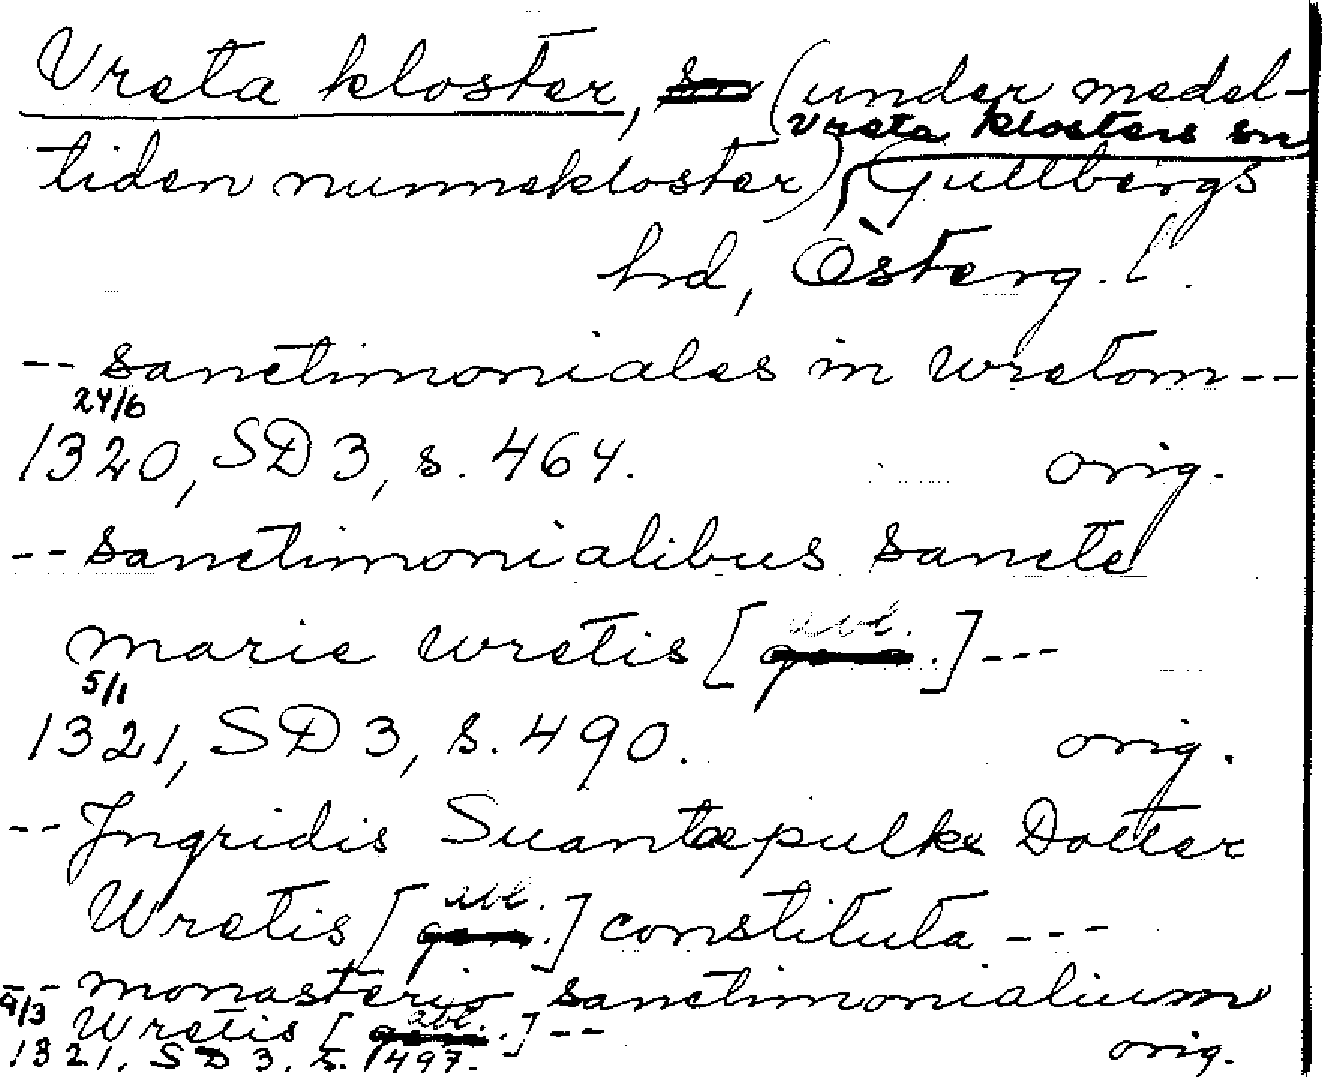 Vreta kloster, sn (under medel-
Vreta klosters sn
tiden nunnekloster), Gullbergs
hd, Österg. l.
-- sanctimoniales in wretom --
24/6
1320, SD 3, s. 464. orig.
-- sanctimonialibus sancte
marie wretis [abl.] ---
5/1
1321, SD 3, s. 490. orig.
-- Jngridis Suantæpulks Dotter
Wretis [abl.] constituta ---
-- monasterio sanctimonialium
9/3 Wretis [abl.] --
1321, SD 3, s. 497. orig.